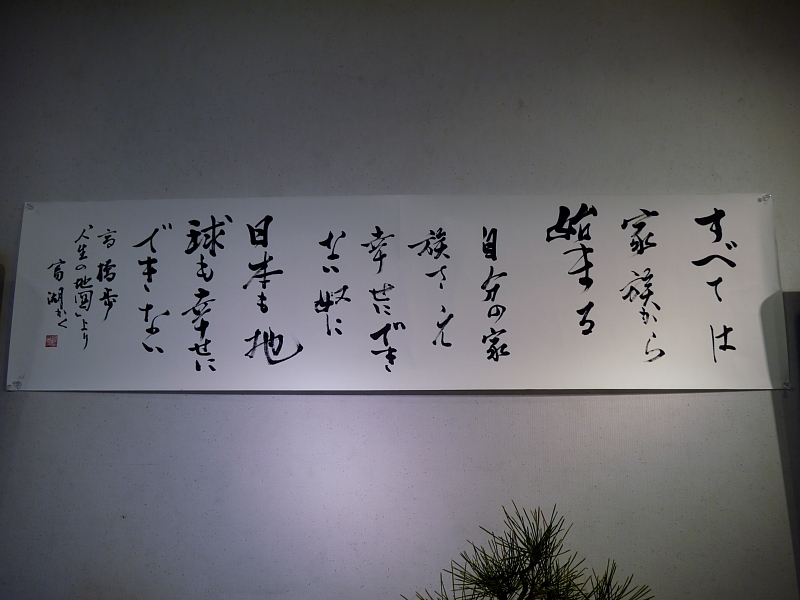 すべては
家族から
始まる
自分の家
族さえ
幸せにでき
ない奴に
日本も地
球も幸せに
できない
高橋歩
「人生の地図」より
富湖かく